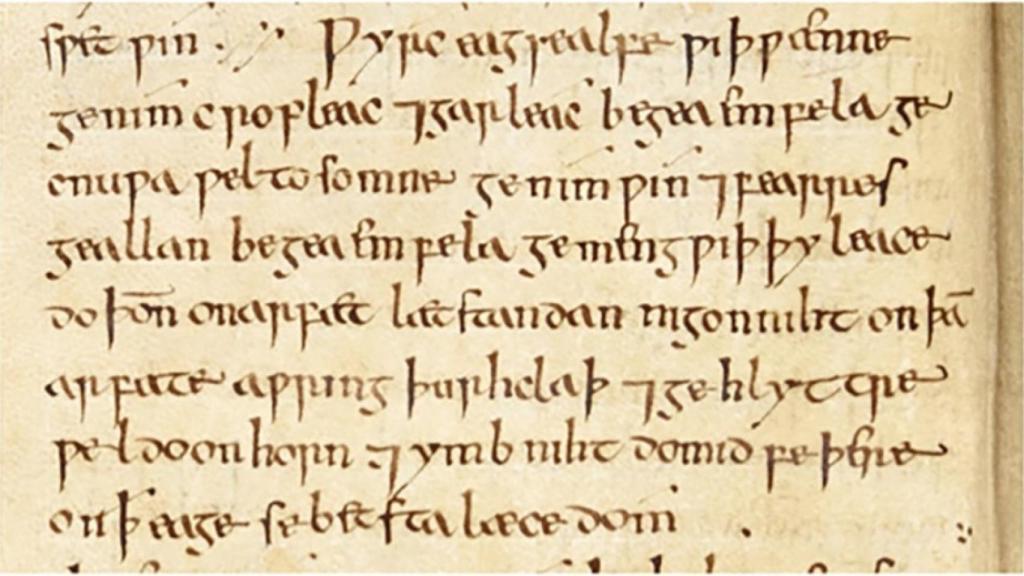 sƿet ƿin . Ƿyrc eagsealfe ƿiþ ƿænne
genim cropleac ⁊ garleac begea emfela ge
cnuƿa ƿel tosomne genim ƿin ⁊ fearres
geallan begea emfela gemeng ƿiþ þy leace
do þoñ on arfæt læt standan nigon niht on þā
arfate aƿring þurh claþ ⁊ gehlyttre
ƿel do on horn ⁊ ymb niht do mid feþere
on ꝥ eage se betsta læcedom .